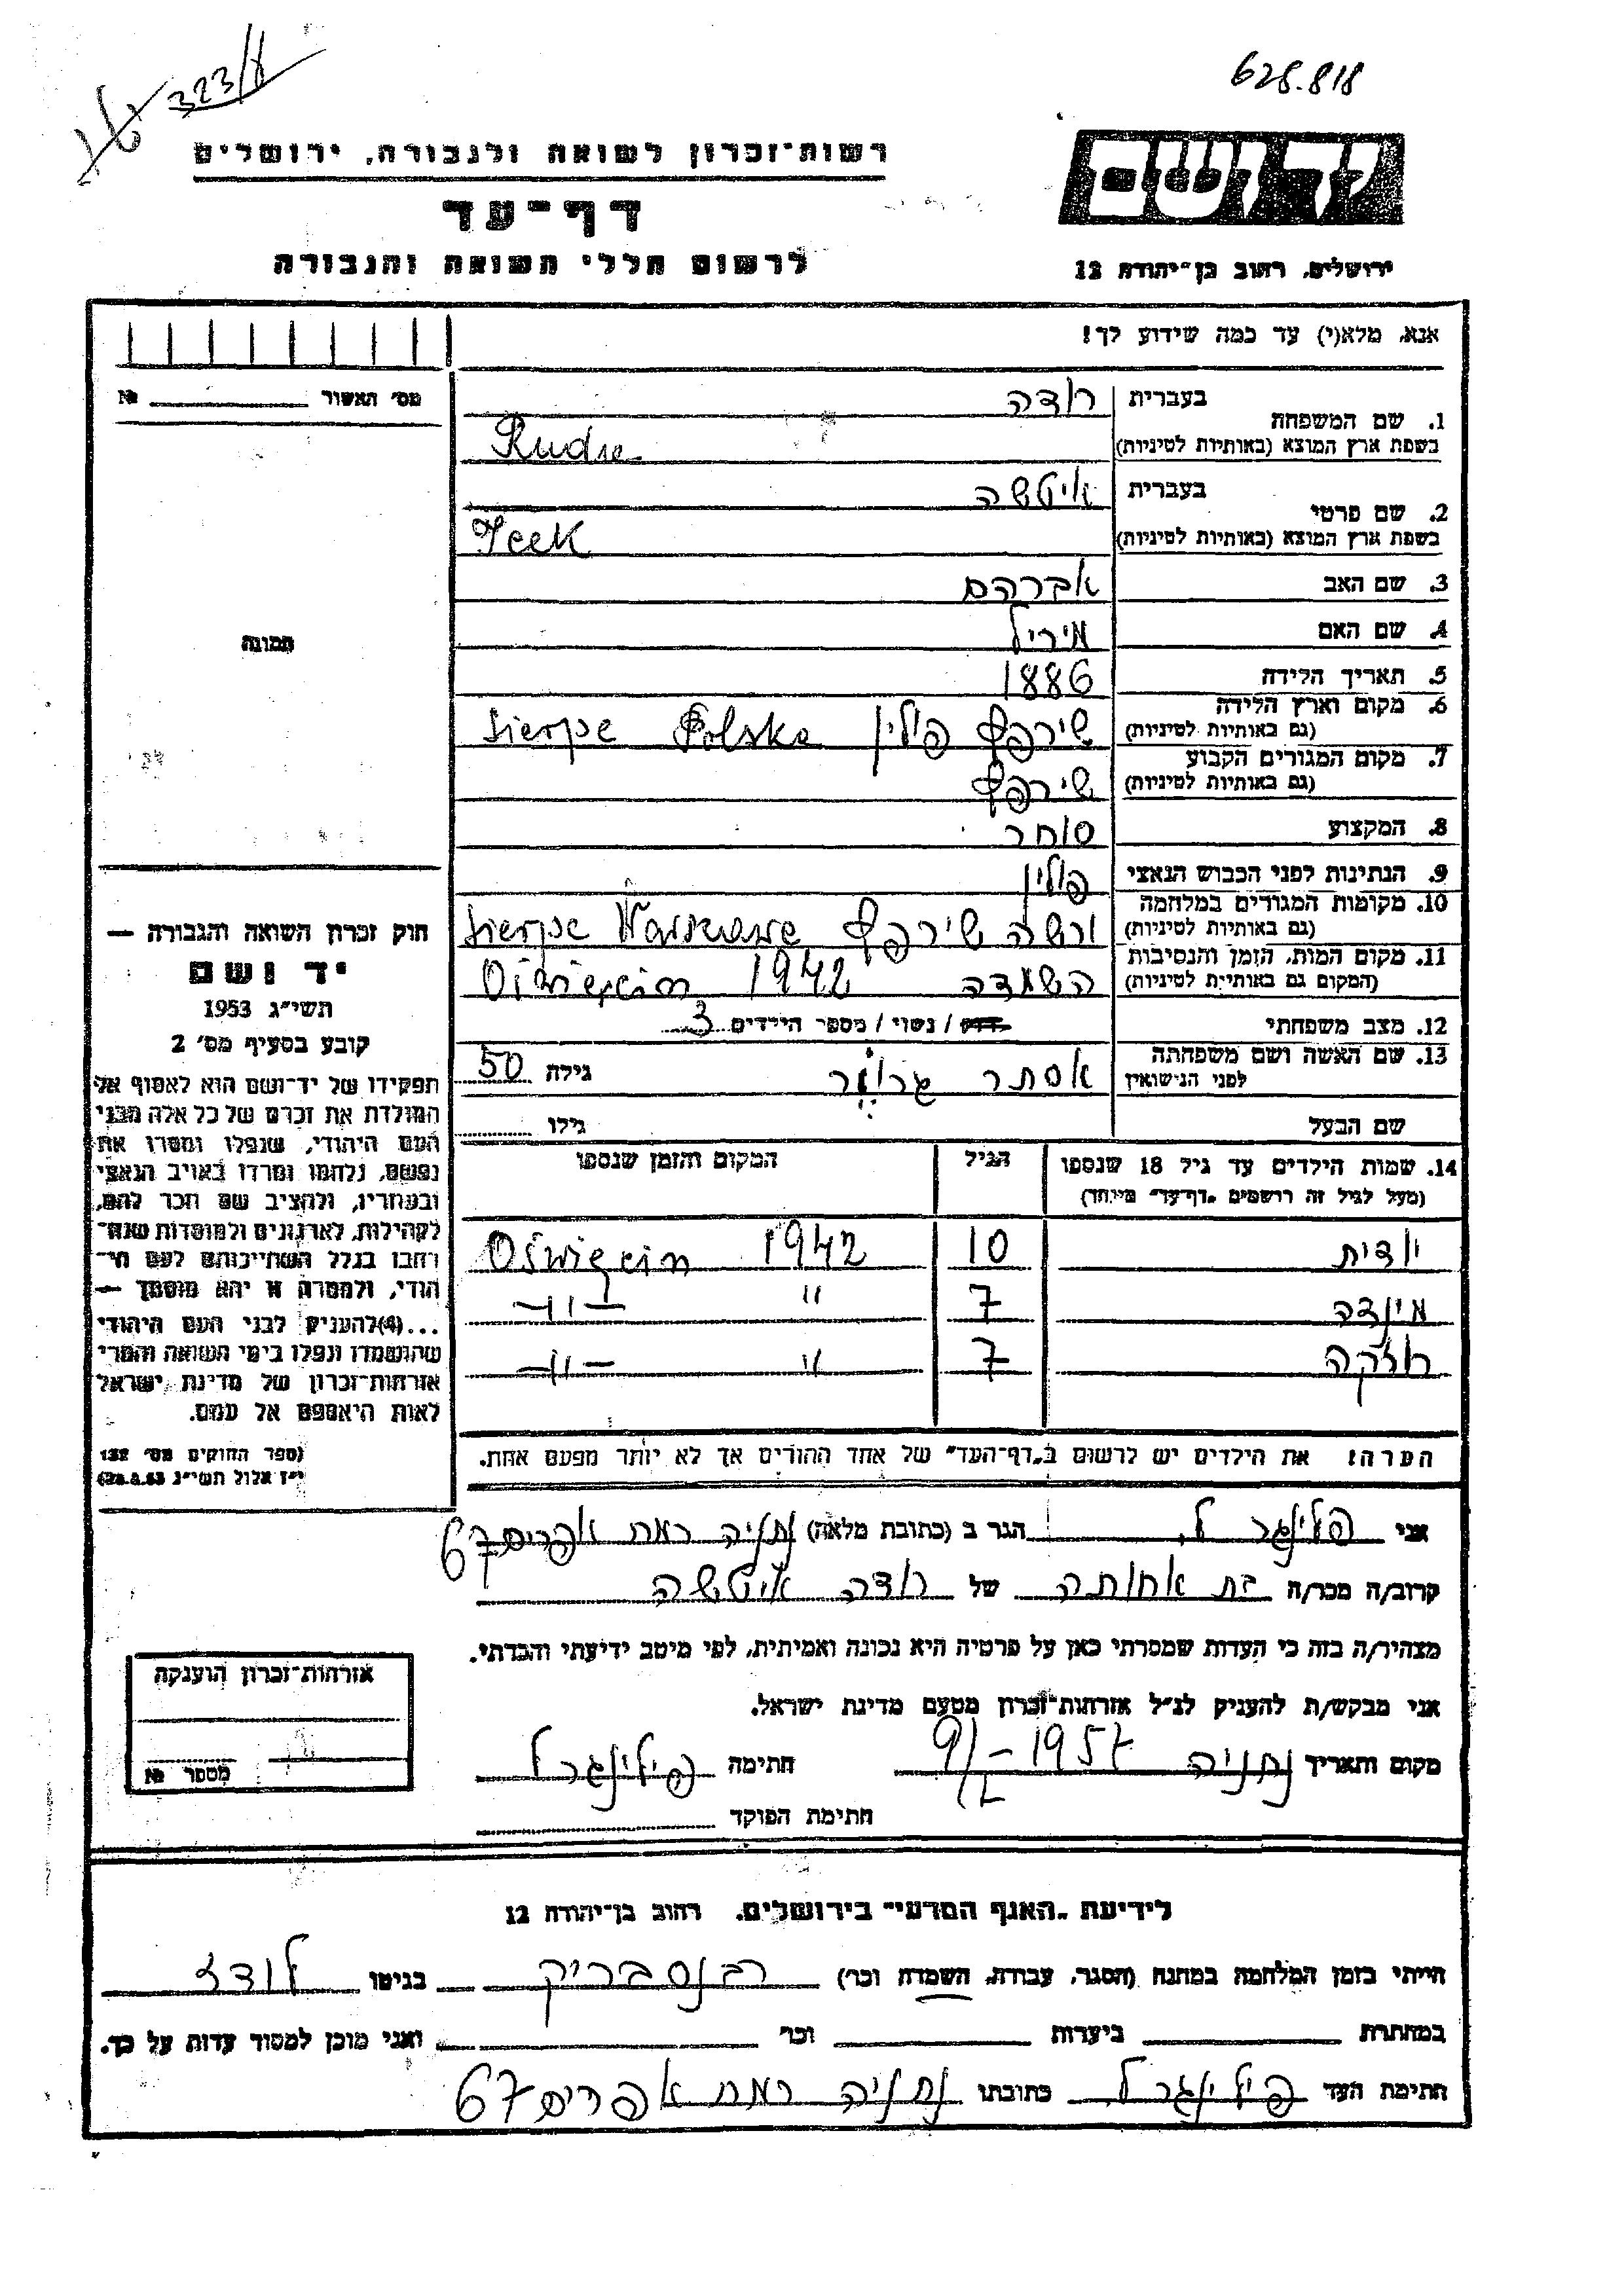 323/8
628.818
רשות־זכרון לשואה ולגבורה, ירושלים
יד ושם
דף־עד
לרשום חללי השואה והגבורה
ירושלים, רחוב בן־יהודה 12
אנא, מלא(י) עד כמה שידוע לך!
מס׳ האשור № ________
1. שם המשפחה בעברית רודה
בשפת ארץ המוצא (באותיות לטיניות) Rudre
2. שם פרטי בעברית איטשה
בשפת ארץ המוצא (באותיות לטיניות) Icek
3. שם האב אברהם
4. שם האם מיריל
תמונה
5. תאריך הלידה 1886
6. מקום וארץ הלידה (גם באותיות לטיניות) שירפץ פולין Polska Sierpe
7. מקום המגורים הקבוע (גם באותיות לטיניות) שירפץ
8. המקצוע סוחר
9. הנתינות לפני הכבוש הנאצי פולין
10. מקומות המגורים במלחמה (גם באותיות לטיניות) ורשה שירפץ Sierpe Warszawa
11. מקום המות, הזמן והנסיבות (המקום גם באותיות לטיניות) השמדה 1942 Oświęcim
12. מצב משפחתי רווק / נשוי / מספר הילדים 3
13. שם האשה ושם משפחתה לפני הנישואין אסתר גילה 50
שם הבעל גילו
14. שמות הילדים עד גיל 18 שנספו הגיל המקום והזמן שנספו
(מעל לגיל זה רושמים „דף־עד״ מיוחד)
יודית 10 1942 Oświęcim
מינדה 7 ״ —״—
רוזקה 7 ״ —״—
הערה: את הילדים יש לרשום ב„דף־העד״ של אחד ההורים אך לא יותר מפעם אחת.
חוק זכרון השואה והגבורה —
יד ושם
תשי״ג 1953
קובע בסעיף מס׳ 2
תפקידו של יד־ושם הוא לאסוף אל
המולדת את זכרם של כל אלה מבני
העם היהודי, שנפלו ומסרו את
נפשם, נלחמו ומרדו באויב הנאצי
ובעוזריו, ולהציב שם וזכר להם,
לקהילות, לארגונים ולמוסדות שנח־
רבו בגלל השתייכותם לעם הי־
הודי, ולמטרה זו יהא מוסמך —
...(4) להעניק לבני העם היהודי
שהושמדו ונפלו בימי השואה והמרי
אזרחות־זכרון של מדינת ישראל
לאות היאספם אל עמם.
(ספר החוקים מס׳ 132
י״ז אלול תשי״ג 28.8.53)
אני פילינגר ל. הגר ב (כתובת מלאה) נתניה רמת אפרים 67
קרוב/ה מכר/ה בת אחותה של רודה איטשה
מצהיר/ה בזה כי העדות שמסרתי כאן על פרטיה היא נכונה ואמיתית, לפי מיטב ידיעתי והכרתי.
אני מבקש/ת להעניק לנ״ל אזרחות־זכרון מטעם מדינת ישראל.
מקום ותאריך נתניה 1957 חתימה פילינגר ל
חתימת הפוקד
אזרחות־זכרון הוענקה
מספר №
לידיעת „האגף המדעי״ בירושלים, רחוב בן־יהודה 12
הייתי בזמן המלחמה במחנה (הסגר, עבודה, השמדה וכו׳) רבנסבריק בגיטו לודז
במחתרת ביערות וכו׳ ואני מוכן למסור עדות על כך.
חתימת העד פילינגר ל. כתובתו נתניה רמת אפרים 67